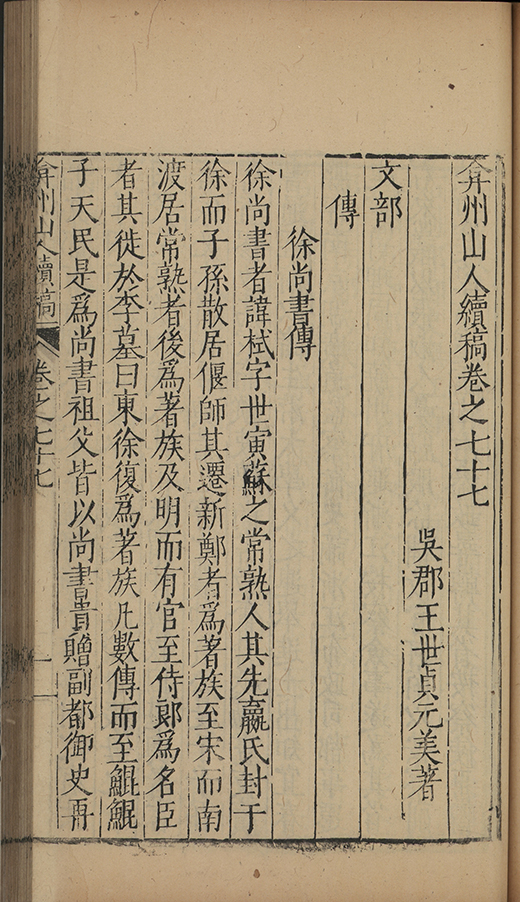 弇州山人續稿卷之七十七
吳郡王世貞元美著
文部
傳
徐尚書傳
徐尚書者諱栻字世寅蘇之常熟人其先嬴氏封于
徐而子孫散居偃師其遷新鄭者為著族至宋而南
渡居常熟者後為著族及明而有官至侍郎為名臣
者其徙於李墓曰東徐復為著族凡數傳而至鯤鯤
子天民是為尚書祖父皆以尚書貴贈副都御史再
弇州山人續稿 卷之七十七 一